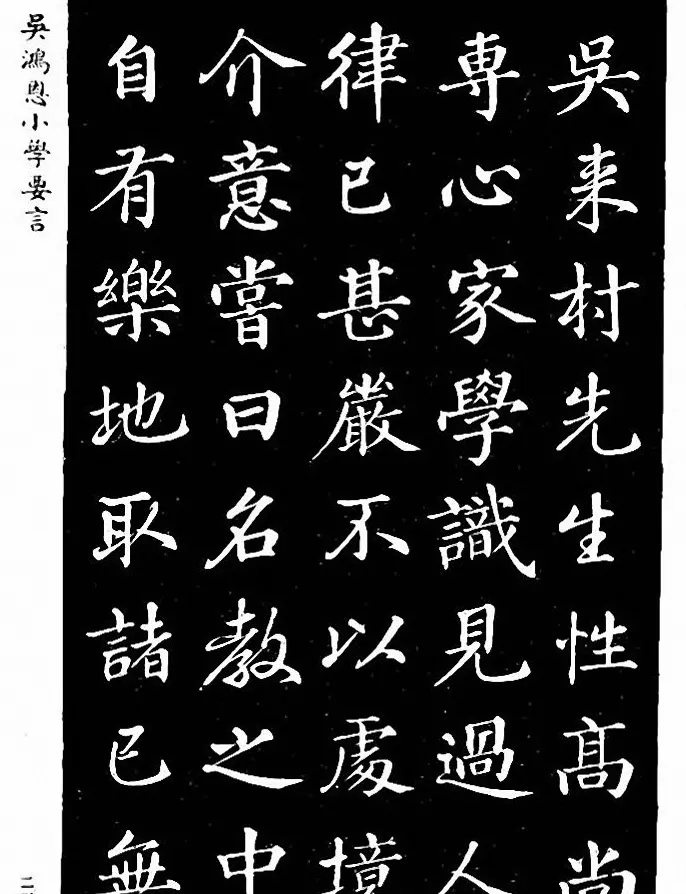 吳鴻恩小學要言
吳耒村先生性高尚
專心家學識見過人
律己甚嚴不以處境
介意嘗曰名教之中
自有樂地取諸己無